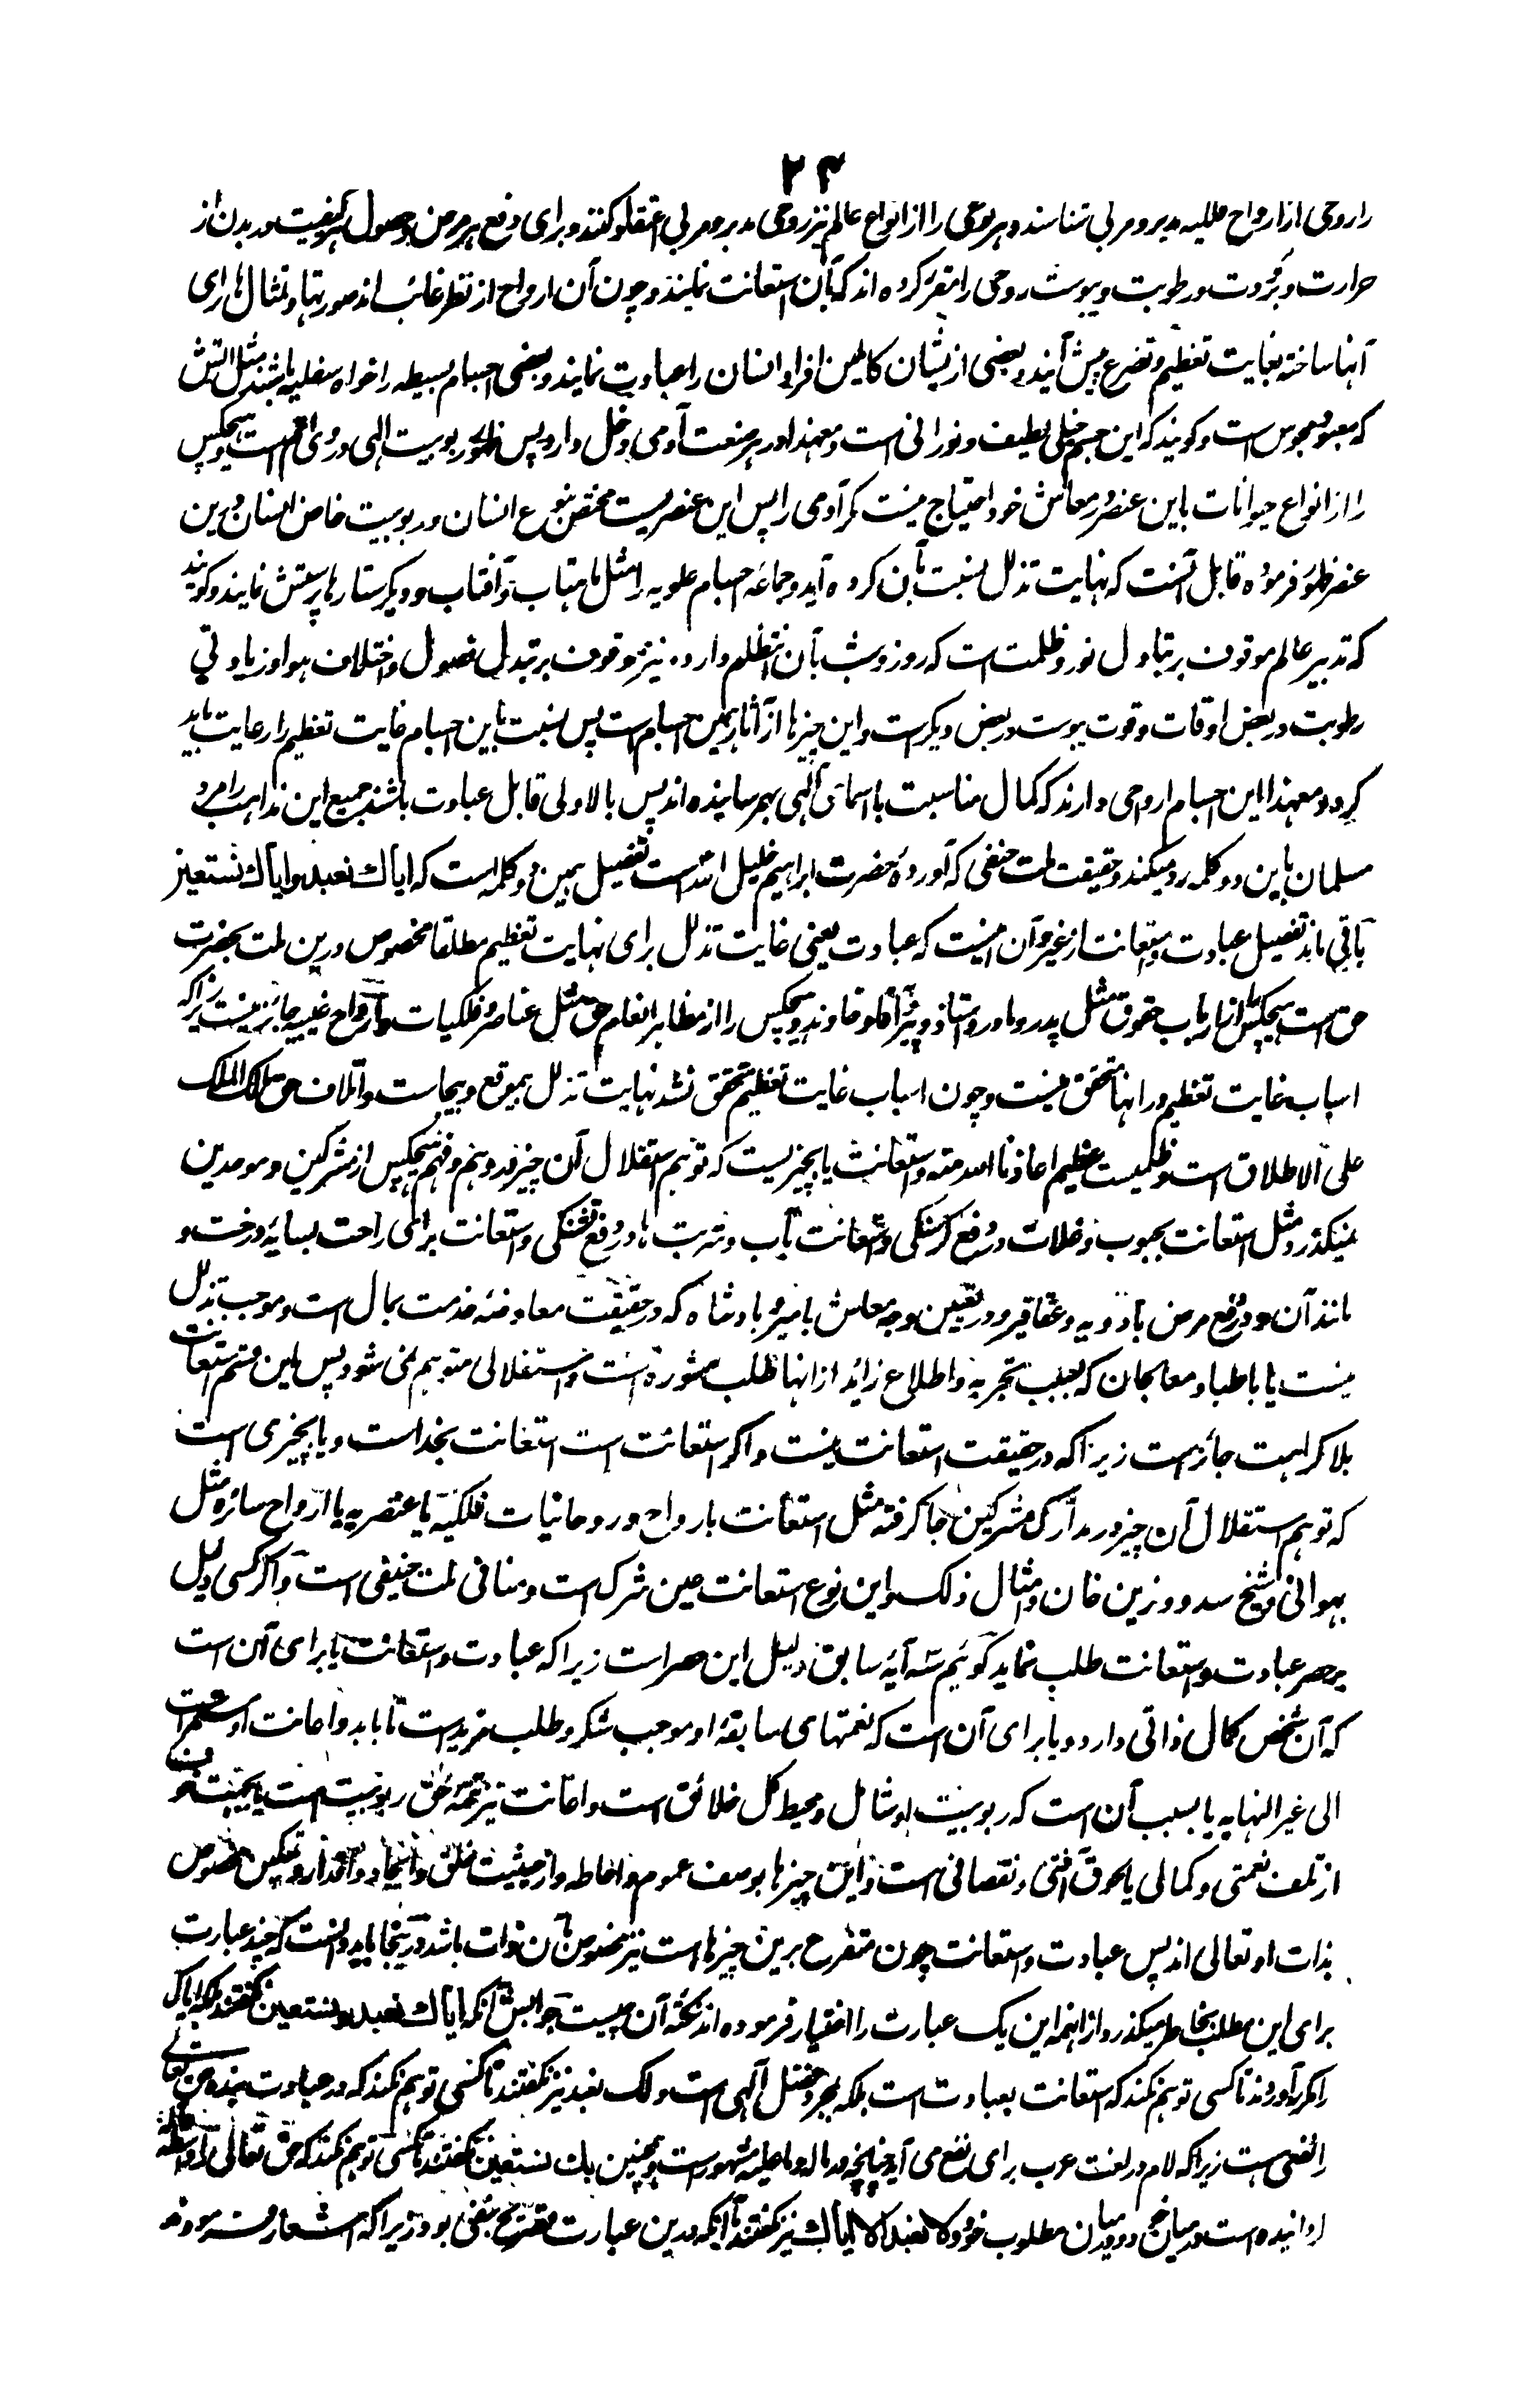 ۲۴
را روحی از ارواح فلکیه مدبر و مربی شناسند و هر نوعی را از انواع عالم نیز روحی مدبر و مربی اعتقاد کنند و برای دفع هر مرض و حصول هر کیفیت در بدن از
حرارت و برودت و رطوبت و یبوست روحی را مقرر کرده اند که بآن استعانت نمایند و چون آن ارواح از نظر غائب اند صورتها و تمثال ها برای
آنها ساخته بغایت تعظیم و تضرع پیش آیند و بعضی از ایشان کاملین افراد انسان را عبادت نمایند و بعضی اجسام بسیطه را خواه سفلیه باشند مثل آتش
که معبود مجوس است و گویند که این جسم خیلی لطیف و نورانی است و معهذا در هر صنعت آدمی دخل دارد پس ظهور ربوبیت الهی در وی اتم است و هیچکس
را از انواع حیوانات باین عنصر در معاش خود احتیاج نیست مگر آدمی را پس این عنصریست مختص بنوع انسان و ربوبیت خاص انسان درین
عنصر ظهور فرموده قابل آنست که نهایت تذلل بنسبت بآن کرده آید و جماعه اجسام علویه را مثل ماهتاب و آفتاب و دیگر ستارها پرستش نمایند و گویند
که تدبیر عالم موقوف بر تبادل نور و ظلمت است که روز و شب بآن انتظام دارد و نیز موقوف بر تبدل فصول و اختلاف هوا و زیادتی
رطوبت در بعض اوقات و قوت یبوست در بعض دیگر است و این چیزها از آثار همین اجسام است پس بنسبت باین اجسام غایت تعظیم را رعایت باید
کرد و معهذا این اجسام ارواحی دارند که کمال مناسبت با اسمای الهی بهم رسانیده اند پس بالاولی قابل عبادت باشند جمیع این مذاهب را مرد
مسلمان باین دو کلمه رد میکند و حقیقت ملت حنفی که آورده حضرت ابراهیم خلیل الله است تفصیل همین دو کلمه است که ایاك نعبد و ایاك نستعین
باقی ماند تفصیل عبادت و استعانت از غیر و آن اینست که عبادت یعنی غایت تذلل برای نهایت تعظیم مطلقا مخصوص درین ملت بحضرت
حق است هیچکس را از ارباب حقوق مثل پدر و مادر و استاد و پیر و آقا و خاوند و هیچکس را از مظاهر انعام حق مثل عناصر و فلکیات و ارواح غیبیه جائز نیست زیرا که
اسباب غایت تعظیم در انها متحقق نیست و چون اسباب غایت تعظیم متحقق نشد نهایت تذلل بیموقع و بیجاست و اتلاف حق مالک الملک
علی الاطلاق است و ظلمیست عظیم اعاذنا الله منه و استعانت یا بچیزیست که توهم استقلال آن چیز در وهم و فهم هیچکس از مشرکین و موحدین
نمیگذرد مثل استعانت بحبوب و غلات در دفع گرسنگی و استعانت بآب و شربت ها در رفع تشنگی و استعانت برای راحت بسایه درخت و
مانند آن و در دفع مرض بادویه و عقاقیر و در تعیین وجه معاش بامیر و بادشاه که در حقیقت معاوضه خدمت بمال است و موجب تذلل
نیست یا باطبا و معالجان که بسبب تجربه و اطلاع زائد از انها طلب مشوره است و استقلالی متوهم نمی شود پس این قسم استعانت
بلا کراهت جائز است زیرا که در حقیقت استعانت نیست و اگر استعانت است استعانت بخداست و یا بچیزی است
که توهم استقلال آن چیز در مدارک مشرکین جا گرفته مثل استعانت بارواح و روحانیات فلکیه یا عنصریه یا ارواح سائره مثل
بهوانی و شیخ سدو و زین خان و امثال ذلک و این نوع استعانت عین شرک است و منافی ملت حنیفی است و اگر کسی دلیل
بر حصر عبادت و استعانت طلب نماید گوئیم سه آیه سابق دلیل این حصر است زیرا که عبادت و استعانت یا برای آن است
که آن شخص کمال ذاتی دارد و یا برای آن است که نعمتهای سابقه او موجب شکر و طلب مزید است تا باید و اعانت او مستمر است
الی غیر النهایه یا بسبب آن است که ربوبیت او شامل و محیط کل خلائق است و اعانت نیز تتمه حق ربوبیت است یا بجهت خوف
از تلف نعمتی و کمالی یا لحوق آفتی و نقصانی است و این چیزها بوصف عموم و احاطه و از حیثیت خلق و ایجاد و اقدار و تمکین مخصوص
بذات او تعالی اند پس عبادت و استعانت چون متفرع برین چیزها است نیز مخصوص بآن ذات باشد در اینجا باید دانست که چند عبارت
برای این مطلب بخاطر میگذرد از انهمه این یک عبارت را اختیار فرموده اند نکته آن چیست جوابش آنکه ایاك نعبد و نستعین نگفتند بلکه ایاك
را مکرر آوردند تا کسی توهم نکند که استعانت بعبادت است بلکه بمجرد فضل الهی است و لک نعبد نیز نگفتند تا کسی توهم نکند که در عبادت بنده حق تعالی
را نفعی هست زیرا که لام در لغت عرب برای نفع می آید چنانچه در ماله و ماعلیه مشهور است و همچنین بك نستعین نگفتند تا کسی توهم نکند که حق تعالی را واسطه
گردانیده است در میان خود و در میان مطلوب خود و لا نعبد الا ایاك نیز نگفتند تا آنکه درین عبارت تصریح بنفی بود زیرا که اشعار فرموده